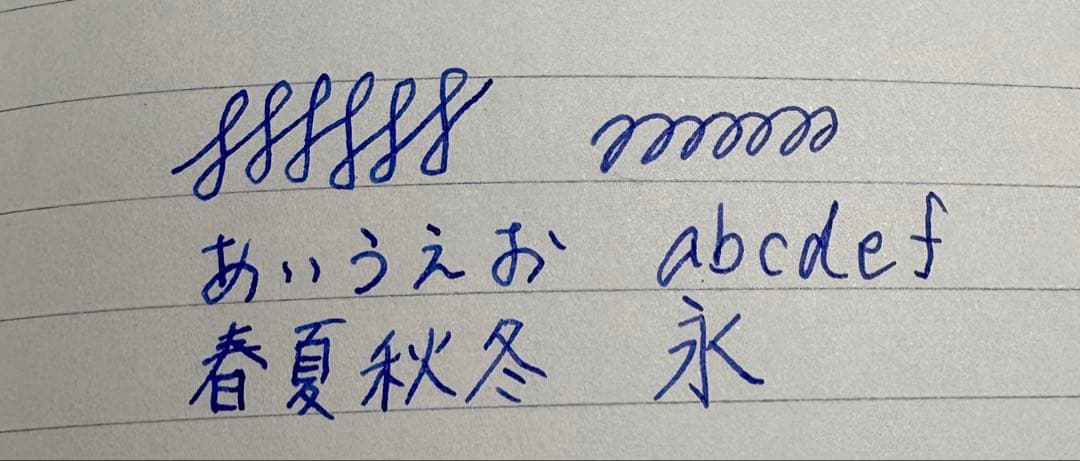 あいうえお abcdef
春夏秋冬 永